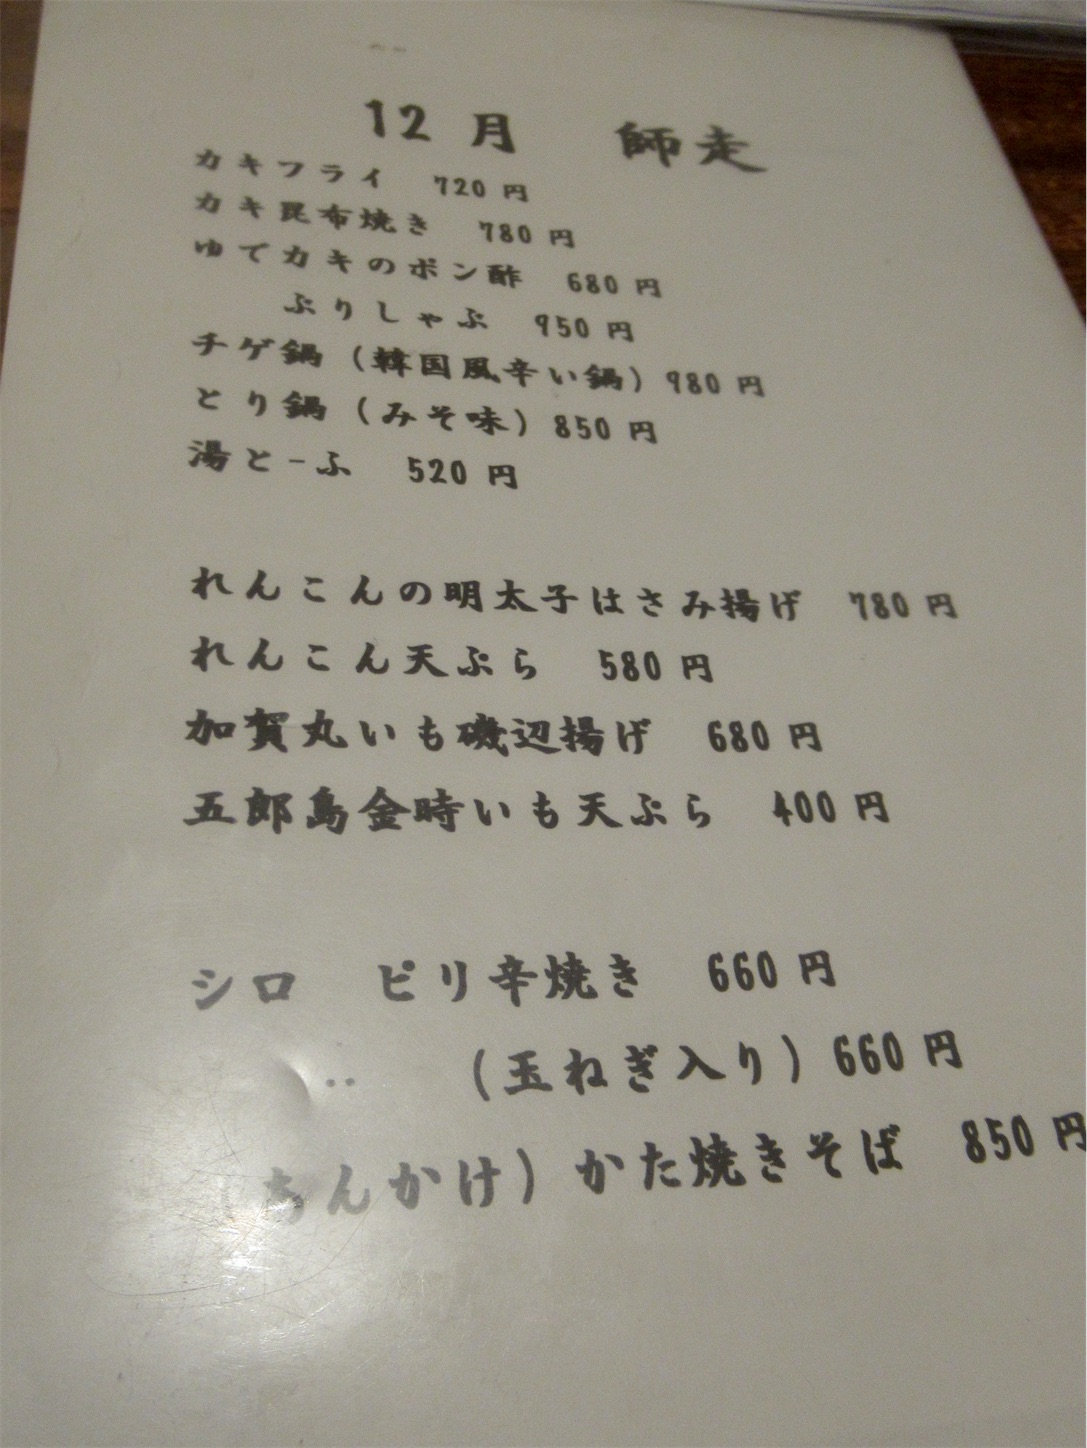 12月 師走
カキフライ 720円
カキ昆布焼き 780円
ゆでカキのポン酢 680円
ぶりしゃぶ 950円
チゲ鍋（韓国風辛い鍋）980円
とり鍋（みそ味）850円
湯とーふ 520円
れんこんの明太子はさみ揚げ 780円
れんこん天ぷら 580円
加賀丸いも磯辺揚げ 680円
五郎島金時いも天ぷら 400円
シロ ピリ辛焼き 660円
‥ （玉ねぎ入り）660円
（あんかけ）かた焼きそば 850円